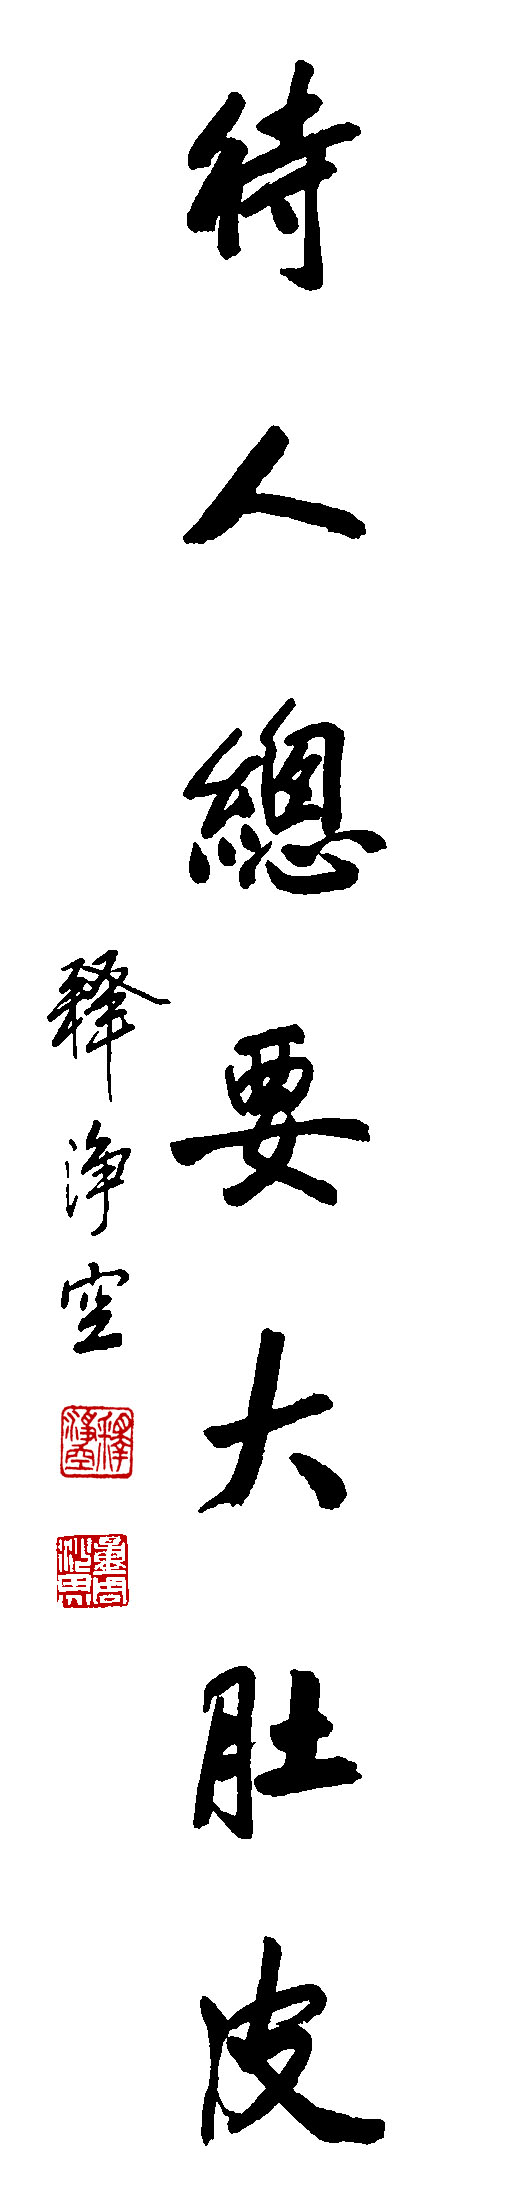 待人總要大肚皮
釋淨空
釋淨空